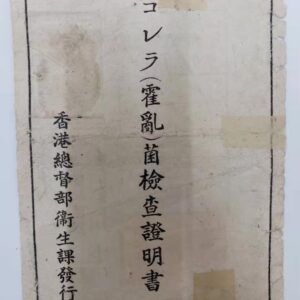 コレラ(霍亂)菌檢查證明書
香港總督部衞生課發行